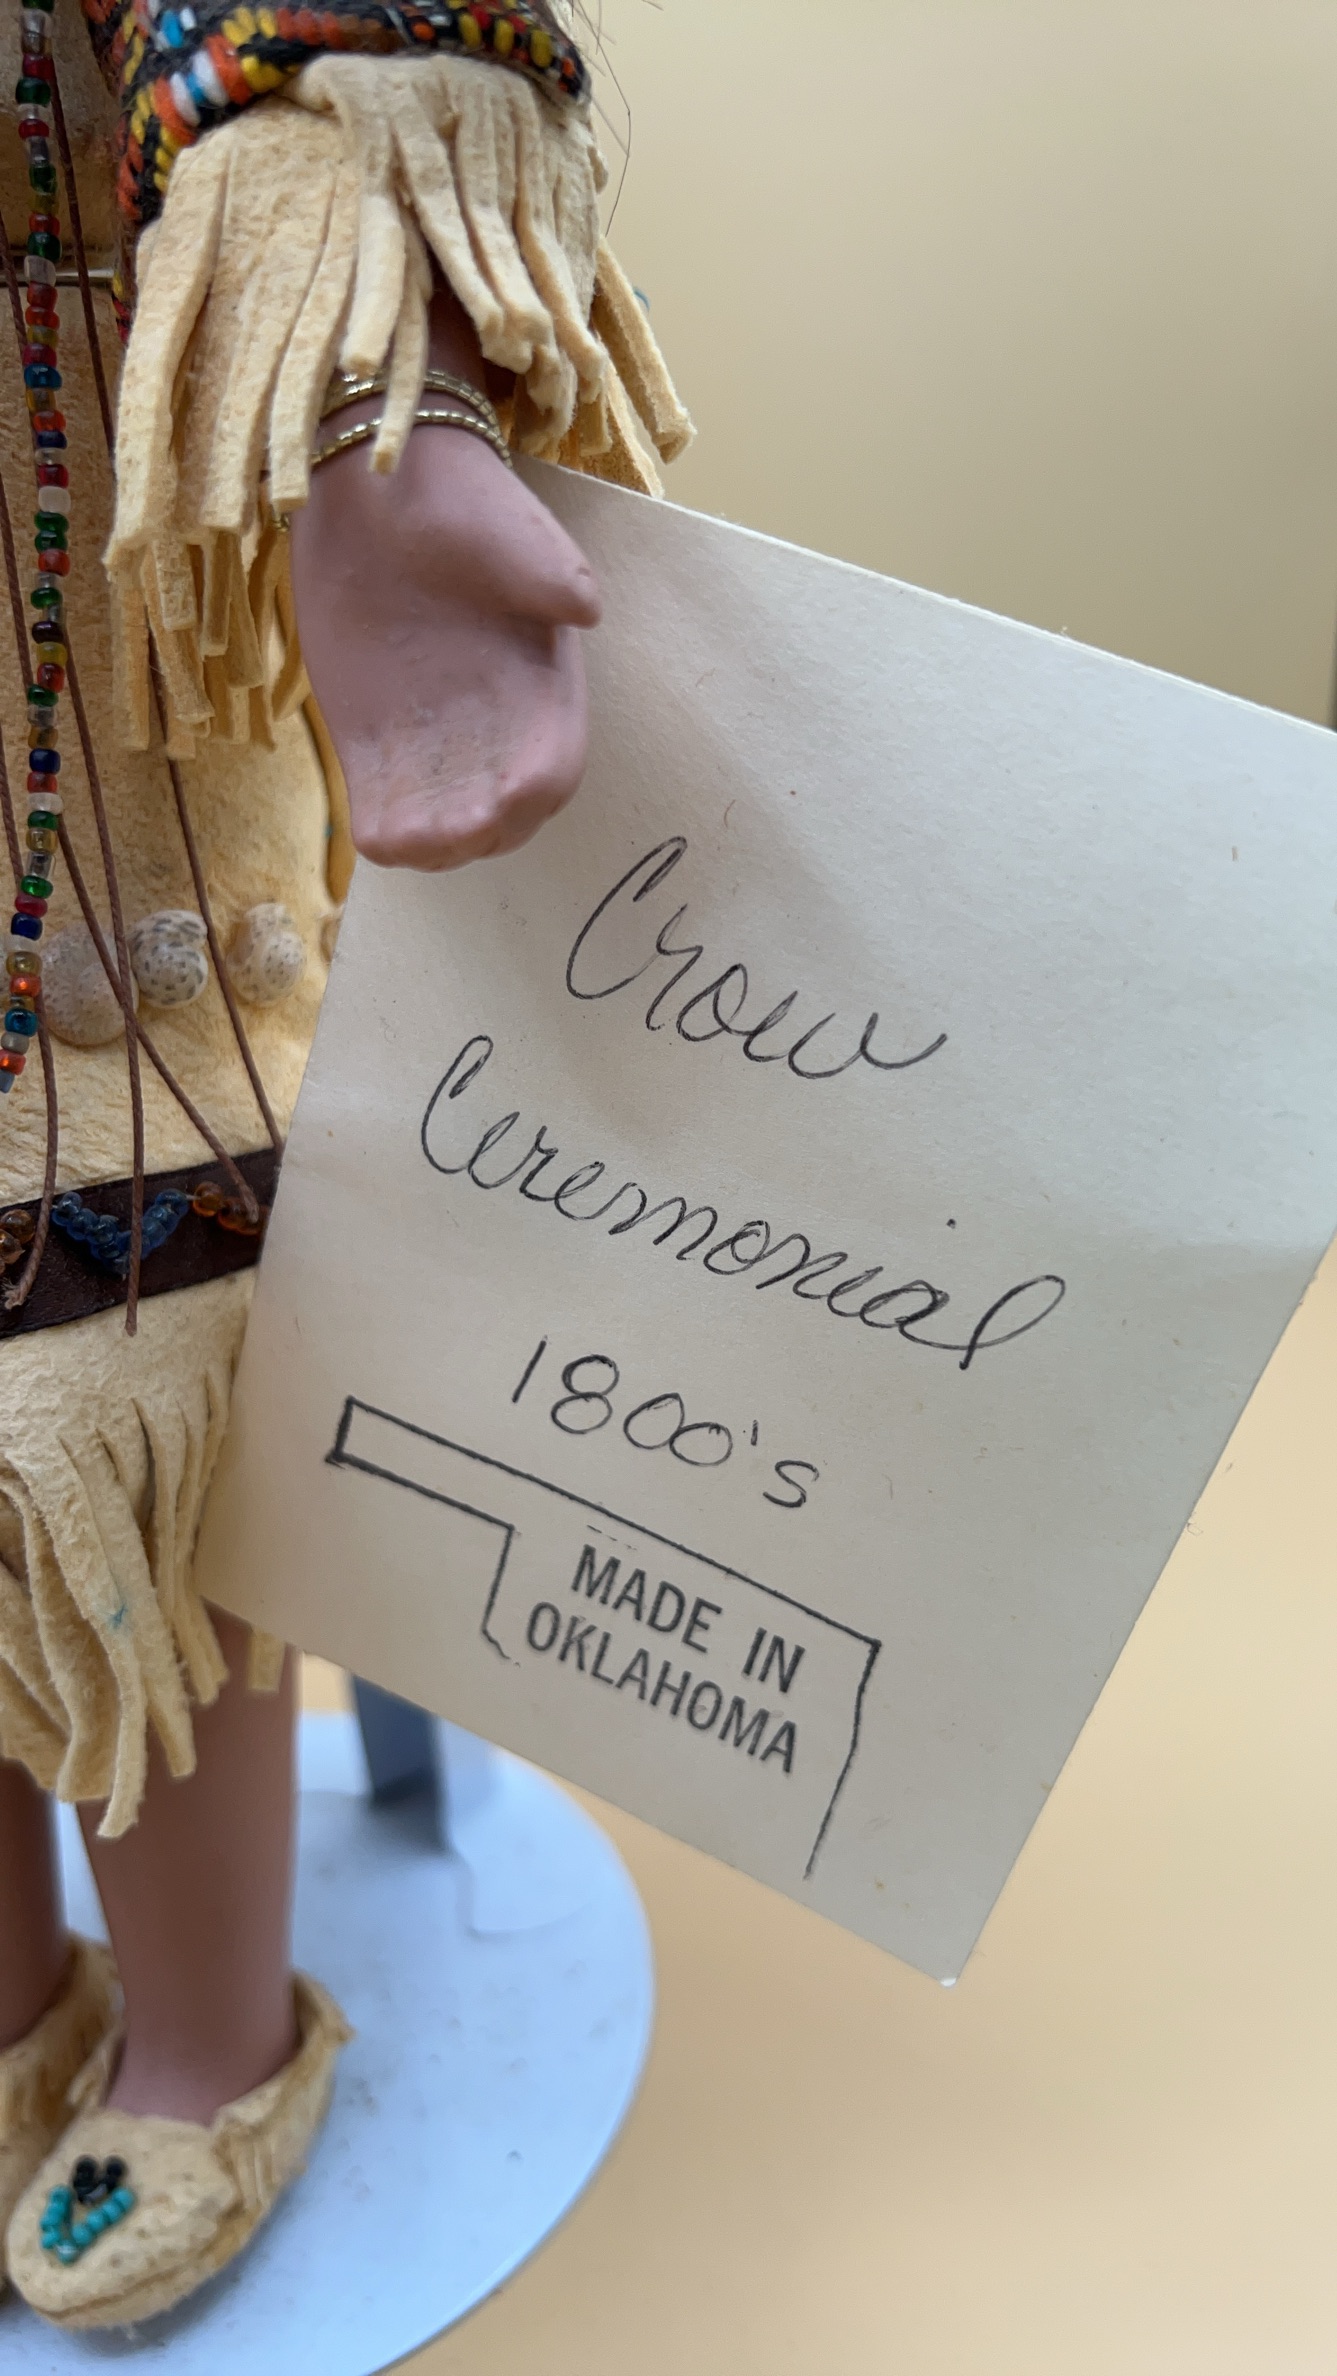 Crow
Ceremonial
1800's
MADE IN
OKLAHOMA